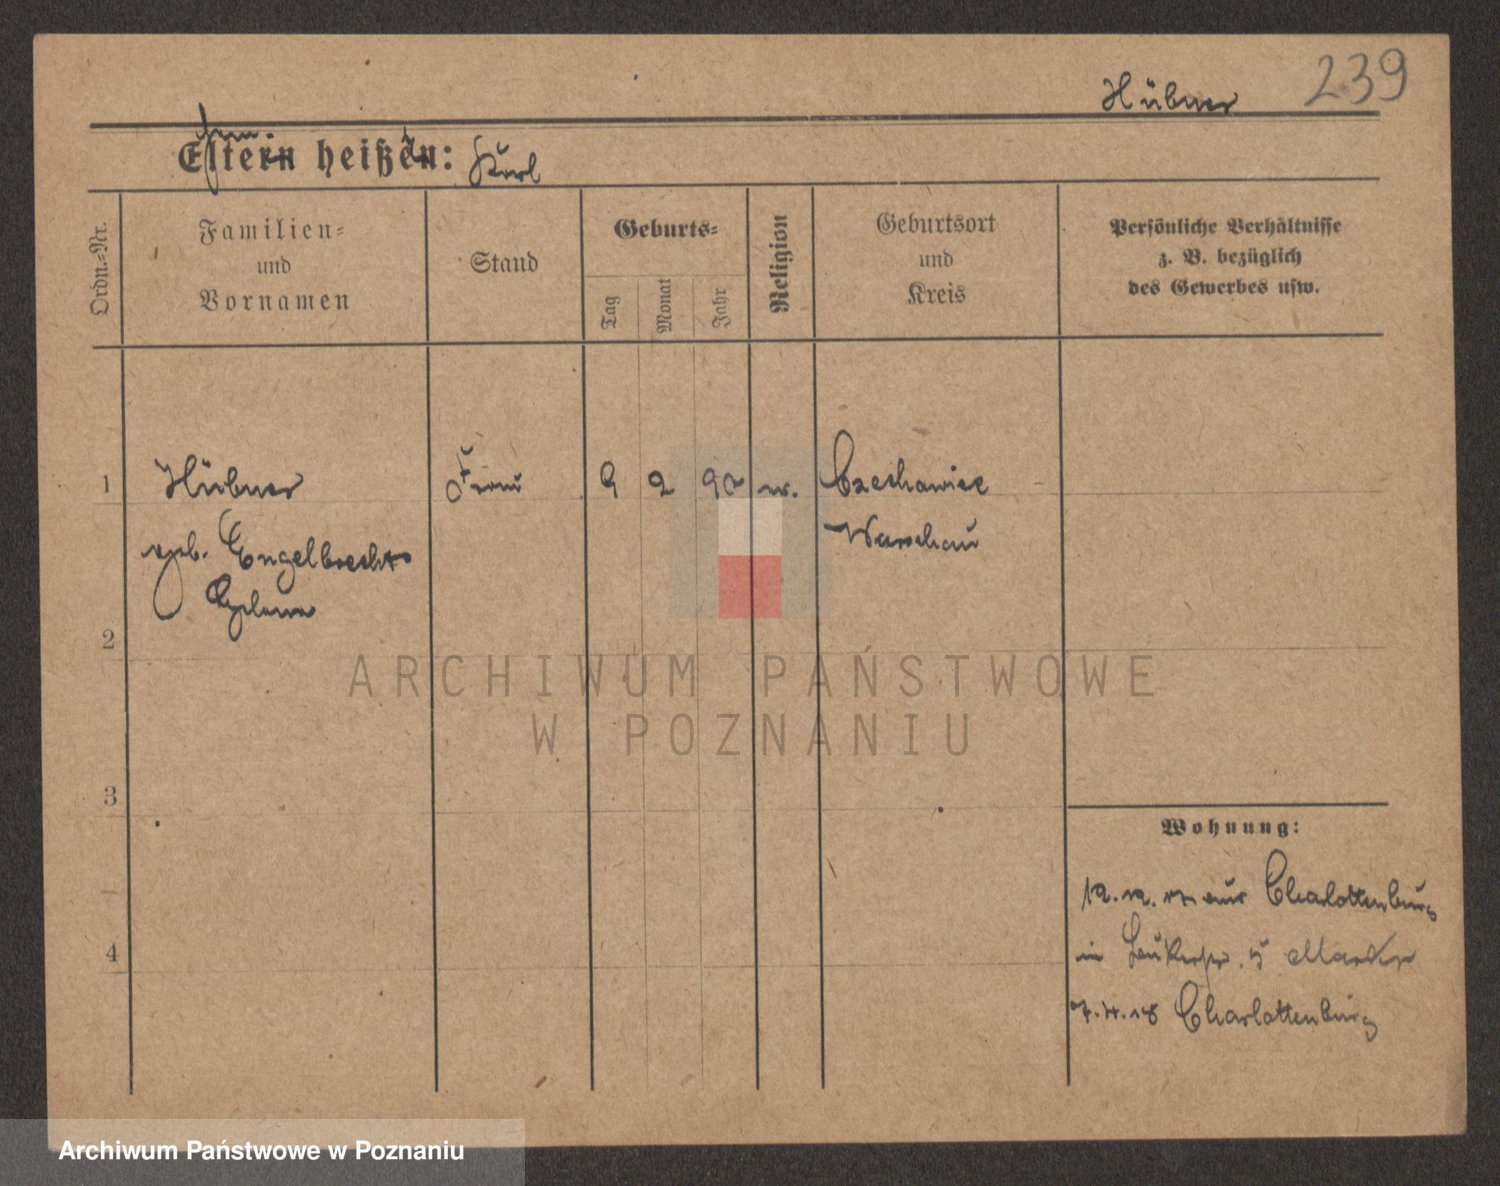 Hübner 239
Eltern heißen: Karl
Ordn.-Nr.
Familien-
und
Vornamen
Stand
Geburts-
Tag
Monat
Jahr
Religion
Geburtsort
und
Kreis
Persönliche Verhältnisse
z. B. bezüglich
des Gewerbes usw.
1 Hübner Frau 9 2 90 Czechowice
geb. Engelbrecht Warschau
2
ARCHIWUM PAŃSTWOWE
W POZNANIU
3
Wohnung:
12. 12. 17 aus Charlottenburg
4
in 5
7. 4. 18 Charlottenburg
Archiwum Państwowe w Poznaniu